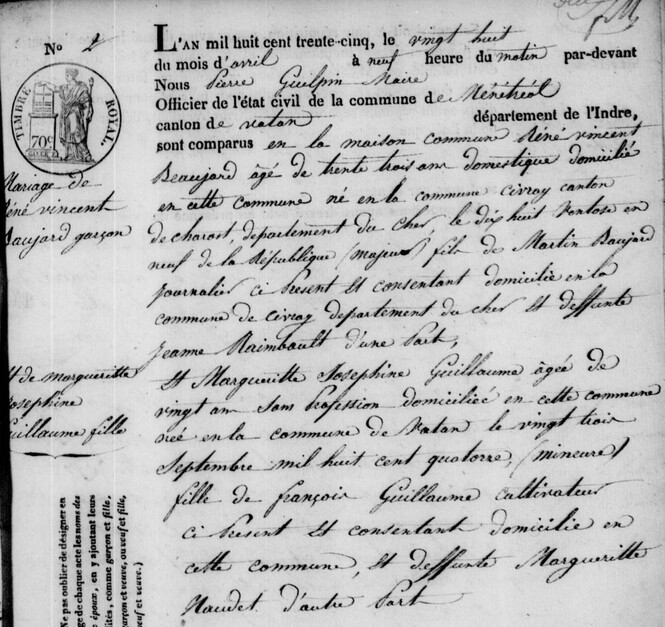 N° 2
TIMBRE ROYAL.
70c
L'AN mil huit cent trente-cinq, le vingt huit
du mois d'avril à neuf heure du matin par-devant
Nous Pierre Guilpin Maire
Officier de l'état civil de la commune de Ménétréol
canton de vatan département de l'Indre,
sont comparus en la maison commune Réné vincent
Beaujard âgé de trente trois ans domestique domicilié
en cette commune né en la commune civray canton
de charost, departement du Cher, le dix huit Ventose en
neuf de la République (majeur) fils de Martin Baujard
Journalier ci Présent Et consentant domicilié en la
commune de civray departement du cher Et deffunte
Jeanne Raimbault d'une Part,
Et Margueritte Josephine Guillaume âgée de
vingt ans sans Profession domiciliée en cette commune
née en la commune de Vatan le vingt trois
Septembre mil huit cent quatorze, (mineure)
fille de françois Guillaume cultivateur
ci Present Et consentant domicilié en
cette commune, Et deffunte Margueritte
Naudet d'autre Part
Mariage de
Réné vincent
Baujard garçon
Et de margueritte
Josephine
Guillaume fille
Ne pas oublier de désigner en
marge de chaque acte les noms des
époux, en y ajoutant leurs
qualités, comme garçon et fille,
garçon et veuve, ou veuf et fille,
veuf et veuve.)